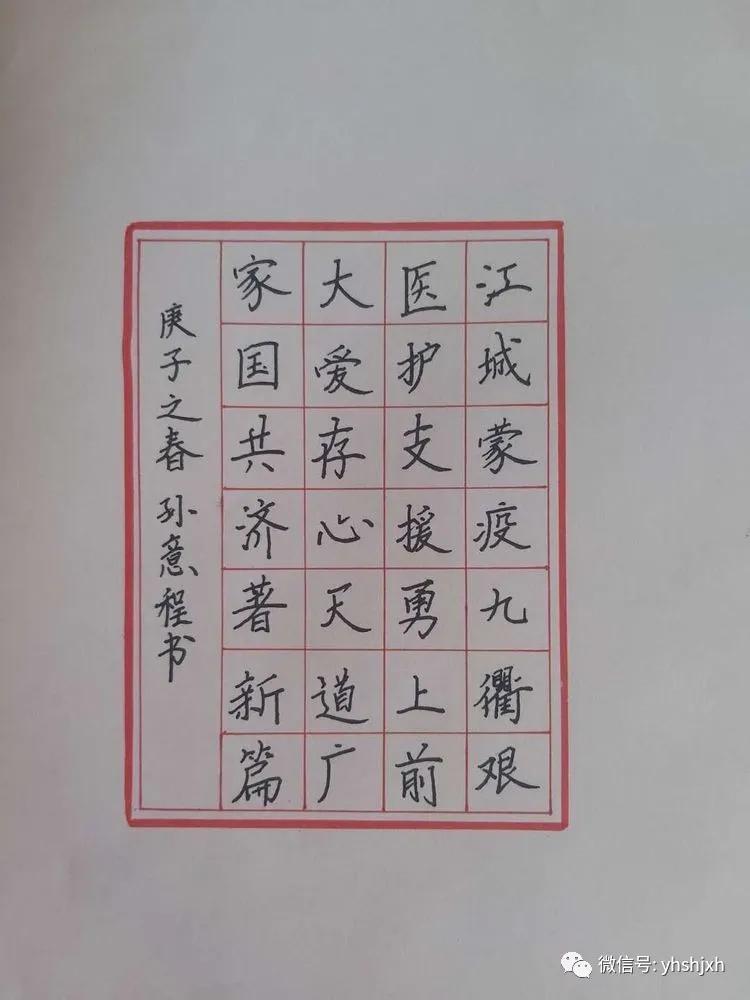 江城蒙疫九衢艰
医护支援勇上前
大爱存心天道广
家国共济著新篇
庚子之春 孙意程书
微信号: yhshjxh